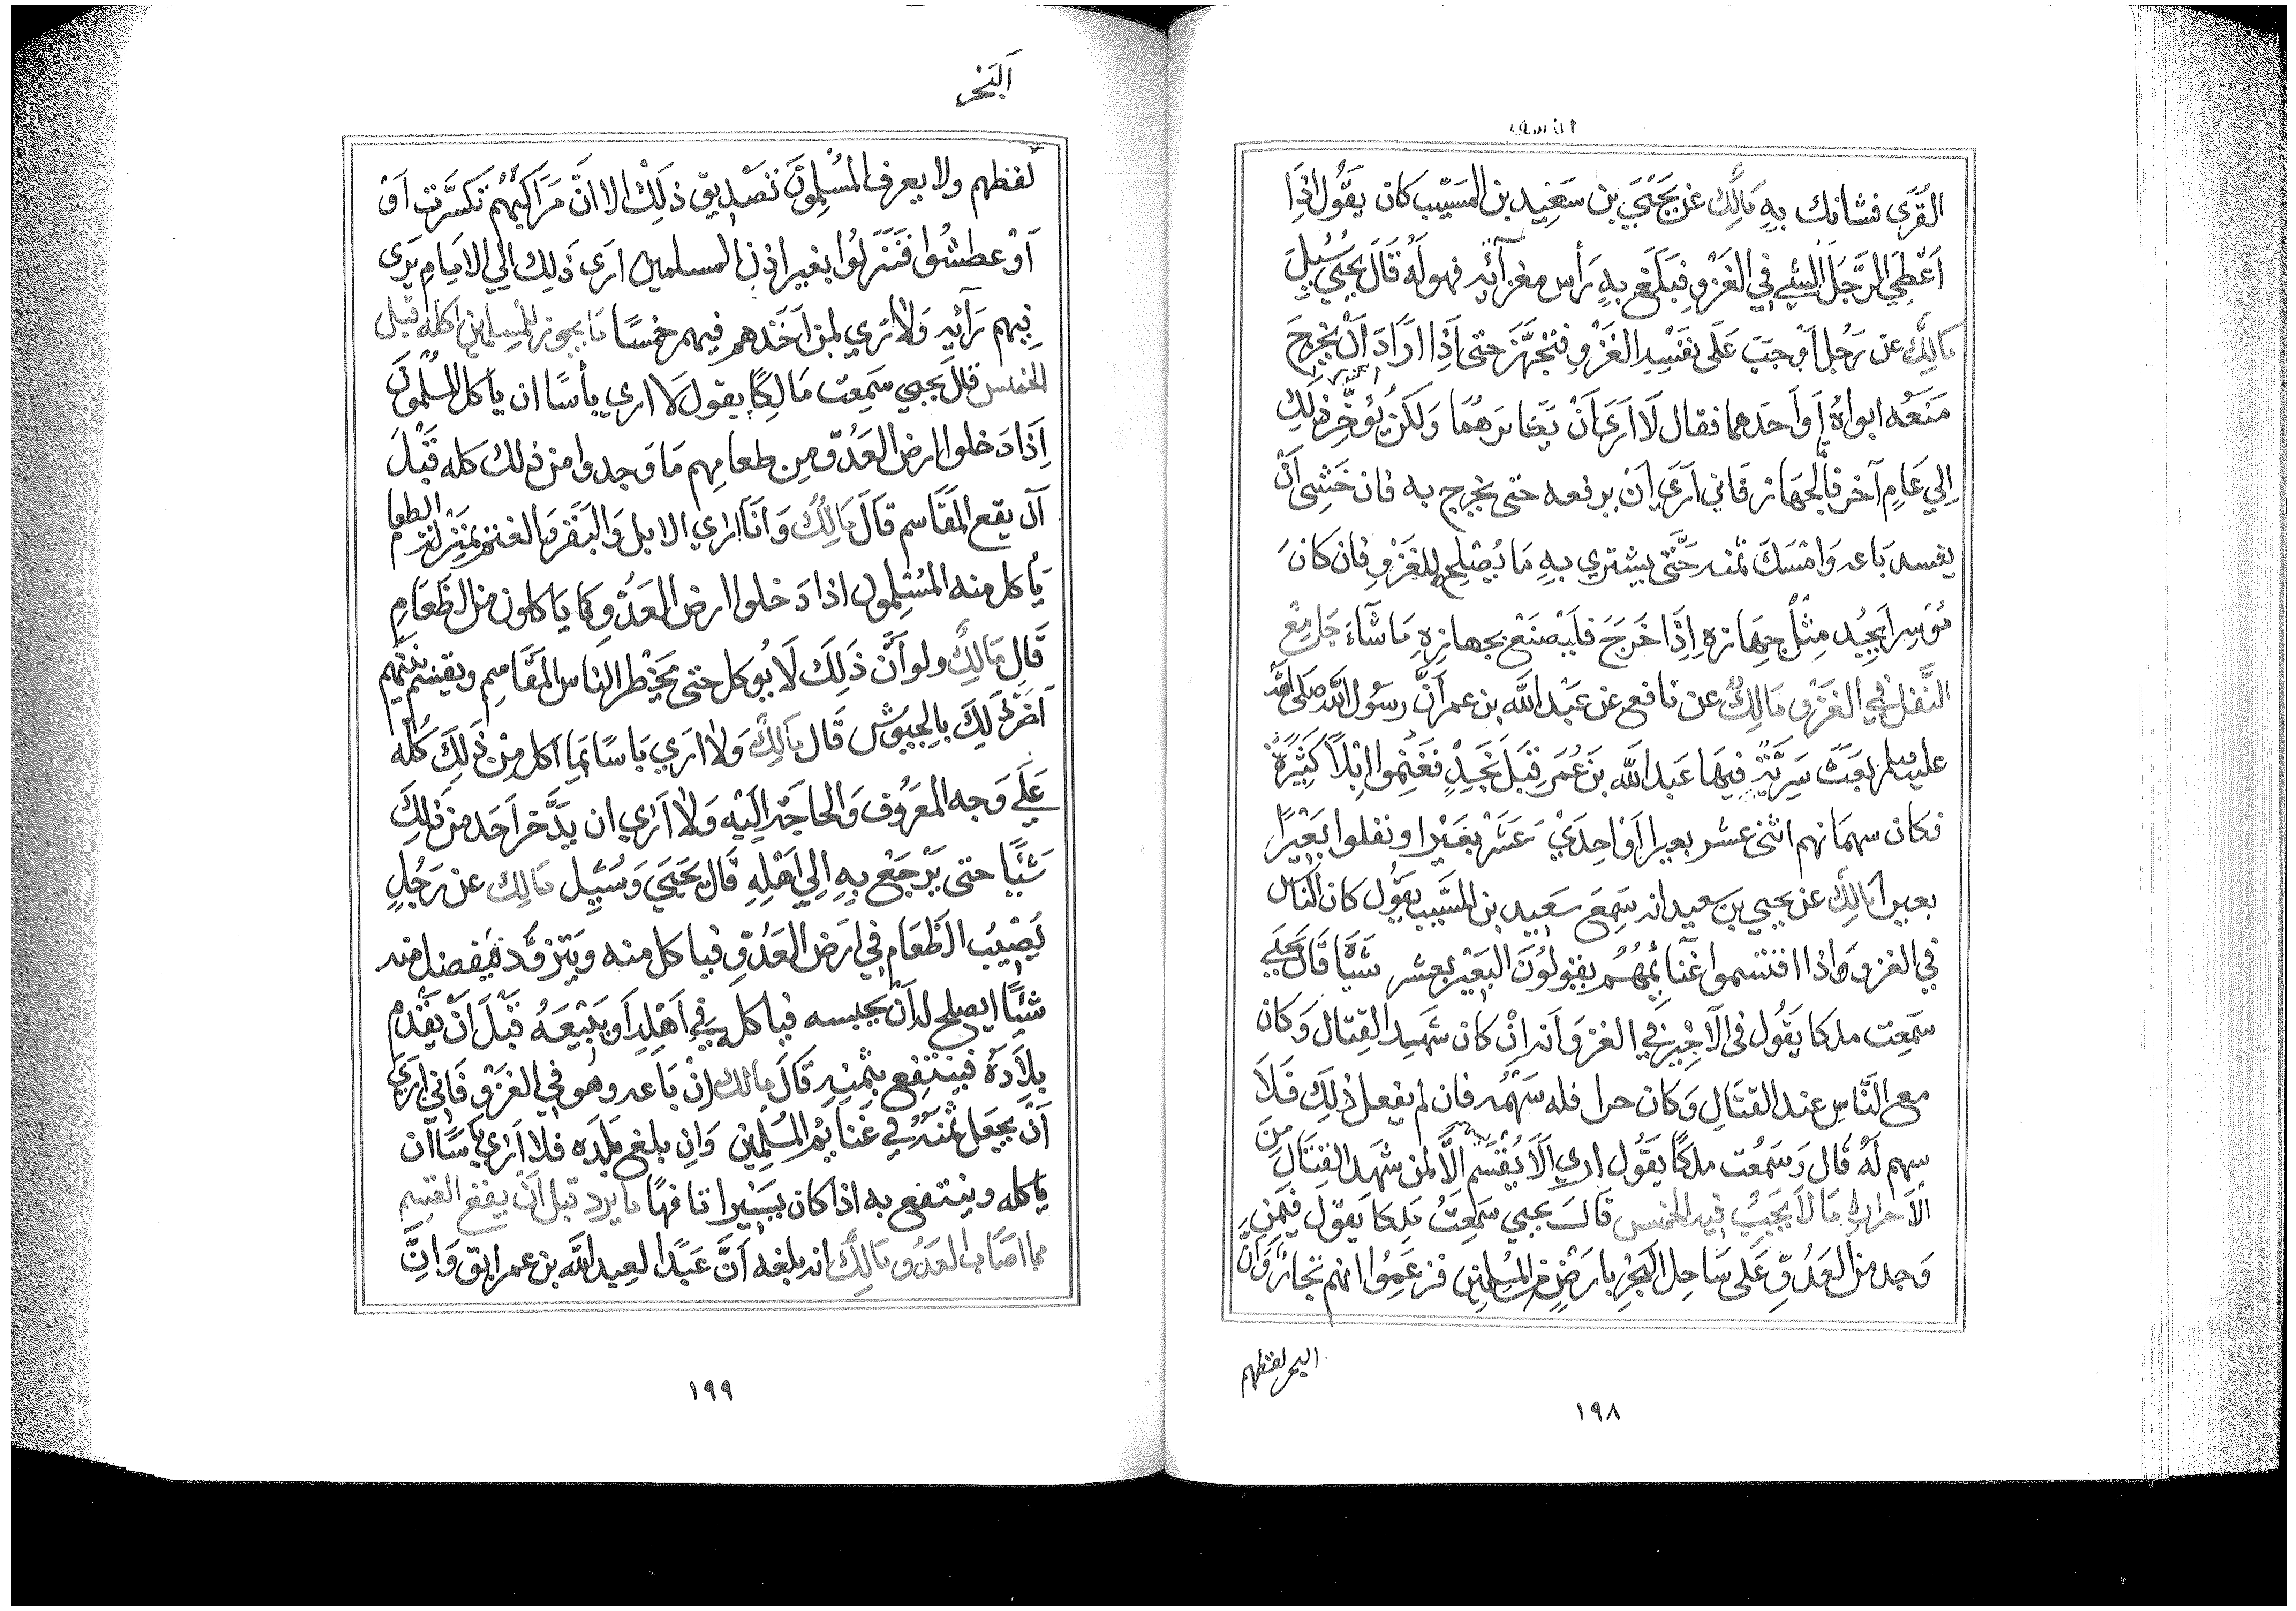 القرى فشانك به مالك عن يحيى بن سعيد بن المسيب كان يقول اذا
اعطي الرجل الشيء في الغزو فيبلغ به رأس مغزاته فهو له قال يحيى سئل
مالك عن رجل اوجب على نفسه الغزو فتجهز حتى اذا اراد ان يخرج
منعه ابواه او احدهما فقال لا ارى ان يكابرهما ولكن يؤخر ذلك
الي عام آخر فالجهاز فاني ارى ان يرفعه حتى يخرج به فان خشى ان
يفسد باعه وامسك ثمنه حتى يشتري به ما يصلحه للغزو فان كان
موسرا يجد مثل جهازه اذا خرج فليصنع بجهازه ما شاء جامع
النفل في الغزو مالك عن نافع عن عبد الله بن عمر ان رسول الله صلى الله
عليه وسلم بعث سرية فيها عبد الله بن عمر قبل نجد فغنموا ابلا كثيرة
فكان سهمانهم اثنى عشر بعيرا او احدى عشر بعيرا ونفلوا بعيرا
بعيرا مالك عن يحيى بن سعيد انه سمع سعيد بن المسيب يقول كان الناس
في الغزو اذا اقتسموا غنائمهم يقولون البعير بعشر شياه قال يحيى
سمعت ملكا يقول في الاجير في الغزو انه ان كان شهد القتال وكان
مع الناس عند القتال وكان حرا فله سهمه فان لم يفعل ذلك فلا
سهم له قال وسمعت ملكا يقول اري الا يقسم الا لمن شهد القتال من
الاحرار ما لا يجب فيه الخمس قال يحيى سمعت ملكا يقول فيمن
وجد من العدو على ساحل البحر بارض المسلمين فزعموا انهم تجار وان
البحر لفظهم
١٩٨
البحر
لفظهم ولا يعرف المسلمون تصديق ذلك الا ان مراكبهم تكسرت او
او عطشوا فنزلوا بغير اذن المسلمين ارى ذلك الي الامام يرى
فيهم رأيه ولا ارى لمن اخذهم فيهم خمسا ما يجوز للمسلمين اكله قبل
الخمس قال يحيى سمعت مالكا يقول لا ارى بأسا ان ياكل المسلمون
اذا دخلوا ارض العدو من طعامهم ما وجدوا من ذلك كله قبل
ان يقع المقاسم قال مالك وانا اري الابل والبقر والغنم بمنزلة الطعام
يأكل منه المسلمون اذا دخلوا ارض العدو كما ياكلون من الطعام
قال مالك ولو ان ذلك لا يوكل حتى يحضر الناس المقاسم ويقسم بينهم
اضر ذلك بالجيوش قال مالك ولا اري باسا بما اكل من ذلك كله
على وجه المعروف والحاجة اليه ولا ارى ان يدخر احد من ذلك
شيئا حتى يرجع به الي اهله قال يحيى وسئل مالك عن رجل
يصيب الطعام في ارض العدو فياكل منه ويتزود فيفضل منه
شئا ايصلح له ان يحبسه فياكله في اهله او يبيعه قبل ان يقدم
بلاده فينتفع بثمنه قال مالك ان باعه وهو في الغزو فاني ارى
ان يجعل ثمنه في غنايم المسلمين وان بلغ بلده فلا ارى باسا ان
ياكله وينتفع به اذا كان يسيرا تافها ما يرد قبل ان يقع القسم
مما اصاب العدو مالك انه بلغه ان عبدا لعبد الله بن عمر ابق وان
١٩٩